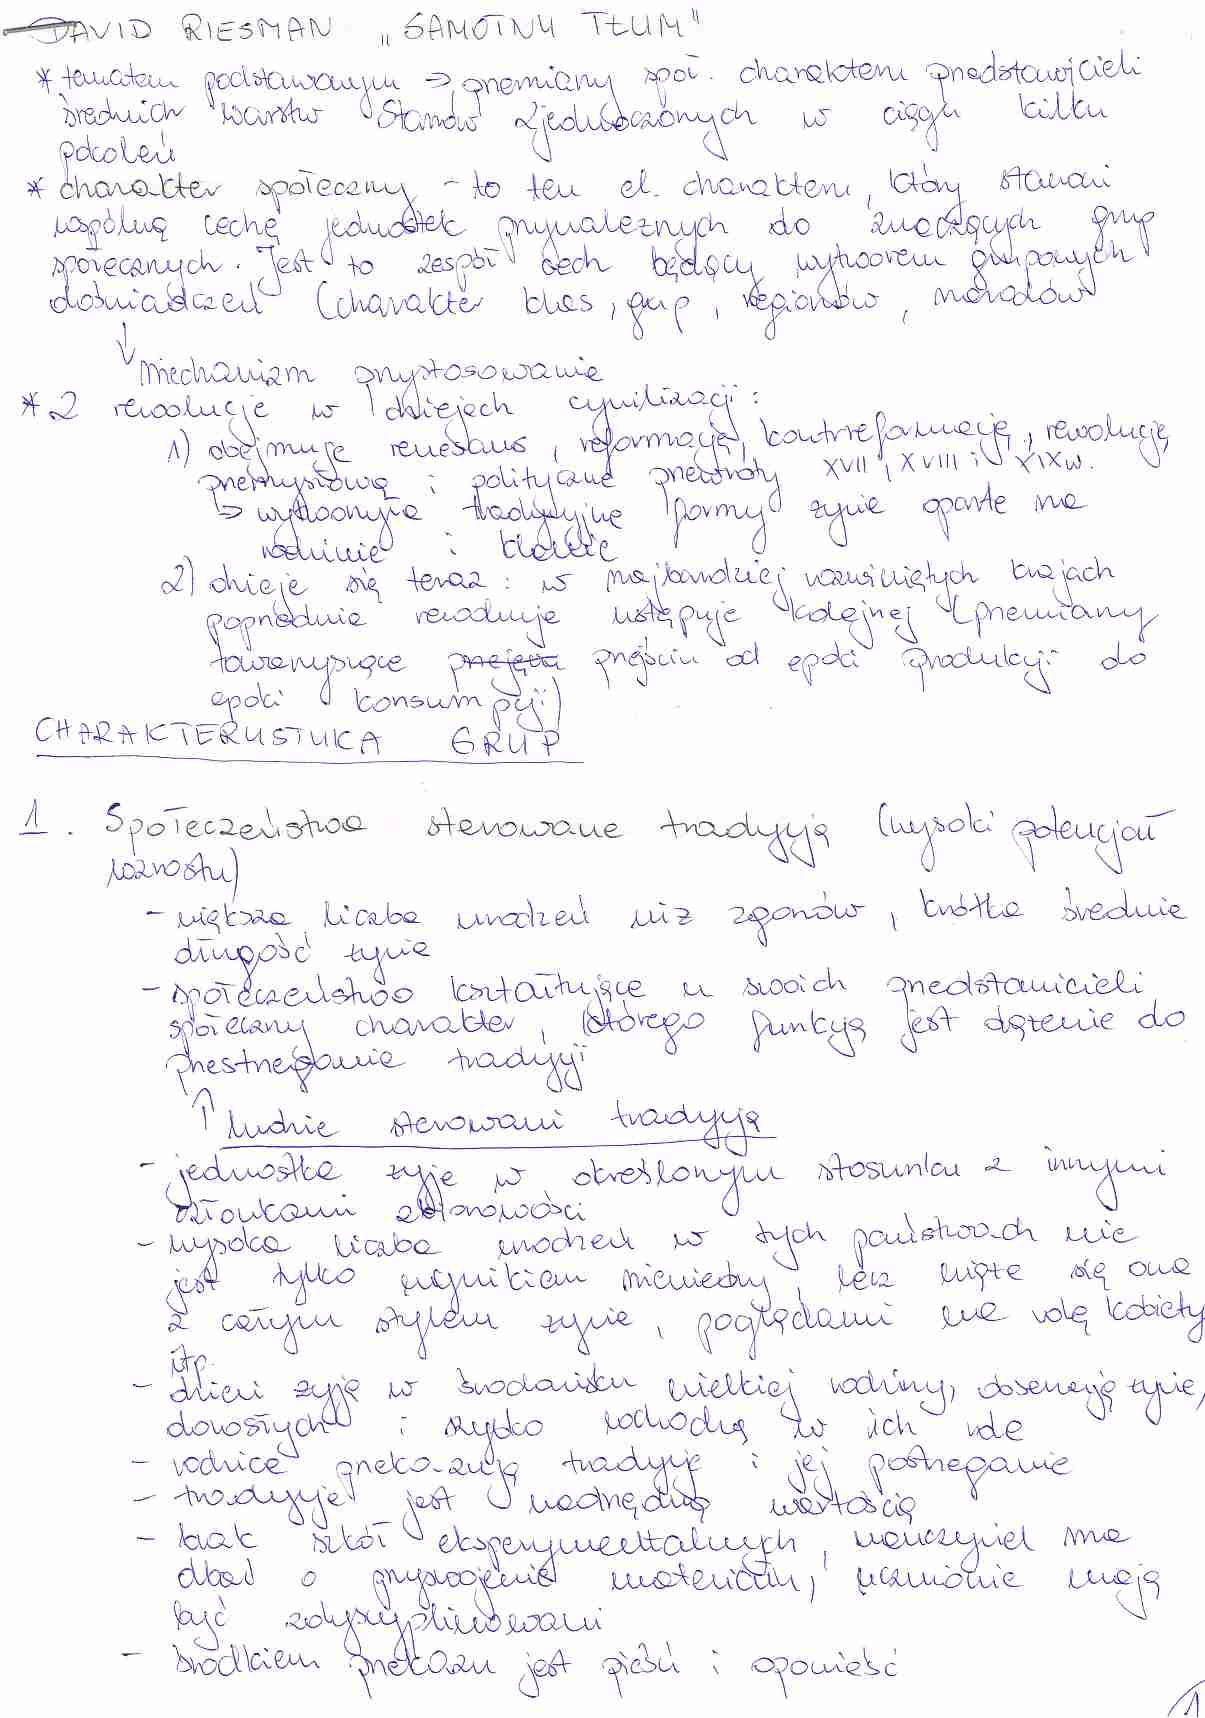 DAVID RIESMAN „SAMOTNY TŁUM"
* tematem podstawowym => przemiany społ. charakteru przedstawicieli
średnich warstw Stanów Zjednoczonych w ciągu kilku
pokoleń
* charakter społeczny - to ten el. charakteru, który stanowi
wspólną cechę jednostek przynależnych do znaczących grup
społecznych. Jest to zespół cech będący wytworem grupowych
doświadczeń (charakter klas, grup, regionów, narodów
↓ mechanizm przystosowania
* 2 rewolucje w dziejach cywilizacji:
1) obejmuje renesans, reformację, kontrreformację, rewolucję
przemysłową i polityczne przewroty XVII, XVIII i XIXw.
=> tradycyjne formy życia oparte na
rodzinie i klanie
2) dzieje się teraz: w najbardziej rozwiniętych krajach
poprzednia rewolucja ustępuje kolejnej (przemiany
towarzyszące przejęciu przejściu od epoki produkcji do
epoki konsumpcji)
CHARAKTERYSTYKA GRUP
1. Społeczeństwa sterowane tradycją (wysoki potencjał
wzrostu)
- większa liczba urodzeń niż zgonów, krótka średnia
długość życia
- społeczeństwo kształtujące u swoich przedstawicieli
społeczny charakter, którego funkcją jest dążenie do
przestrzegania tradycji
↑ ludzie sterowani tradycją
- jednostka żyje w określonym stosunku z innymi
członkami zbiorowości
- wysoka liczba urodzeń w tych państwach nie
jest tylko wynikiem niewiedzy, lecz wiąże się ona
z całym stylem życia, poglądami na rolę kobiety
itp.
- dzieci żyją w środowisku wielkiej rodziny, obserwują życie,
dorosłych i szybko wchodzą w ich role
- rodzice przekazują tradycję i jej postrzeganie
- tradycja jest nadrzędną wartością
- brak szkół eksperymentalnych, nauczyciel ma
dbać o przyswojenie materiału, uczniowie mają
być zdyscyplinowani
- środkiem przekazu jest pieśń i opowieść
1